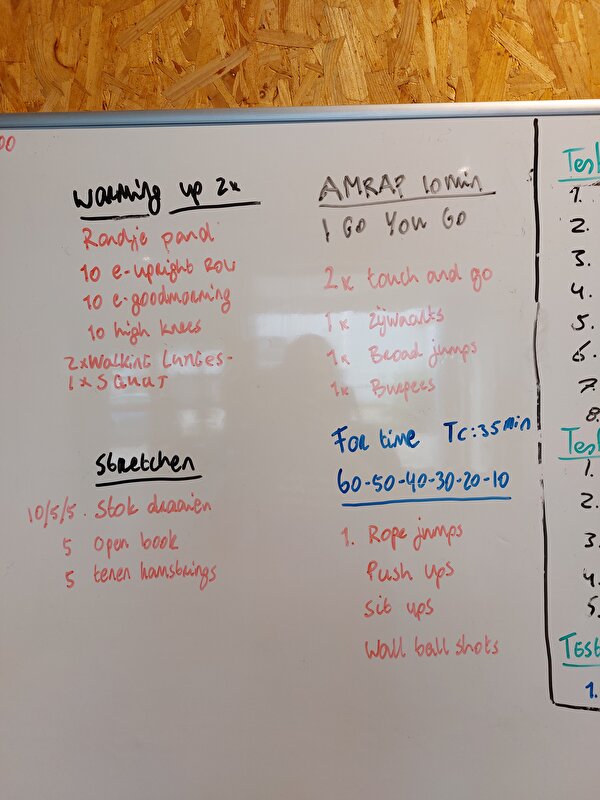 00
Warming up 2x
Rondje pand
10 e-upright Row
10 e-goodmorning
10 high knees
2xWalking Lunges-
1xSquat
Stretchen
10/5/5. Stok draaien
5 Open book
5 tenen hamstrings
AMRAP 10min
I Go You Go
2x touch and go
1x zijwaarts
1x Broad jumps
1x Burpees
For time Tc:35min
60-50-40-30-20-10
1. Rope jumps
Push ups
Sit ups
Wall ball shots
Test
1.
2.
3.
4.
5.
6.
7.
8.
Test
1.
2.
3.
4.
5.
Test
1.